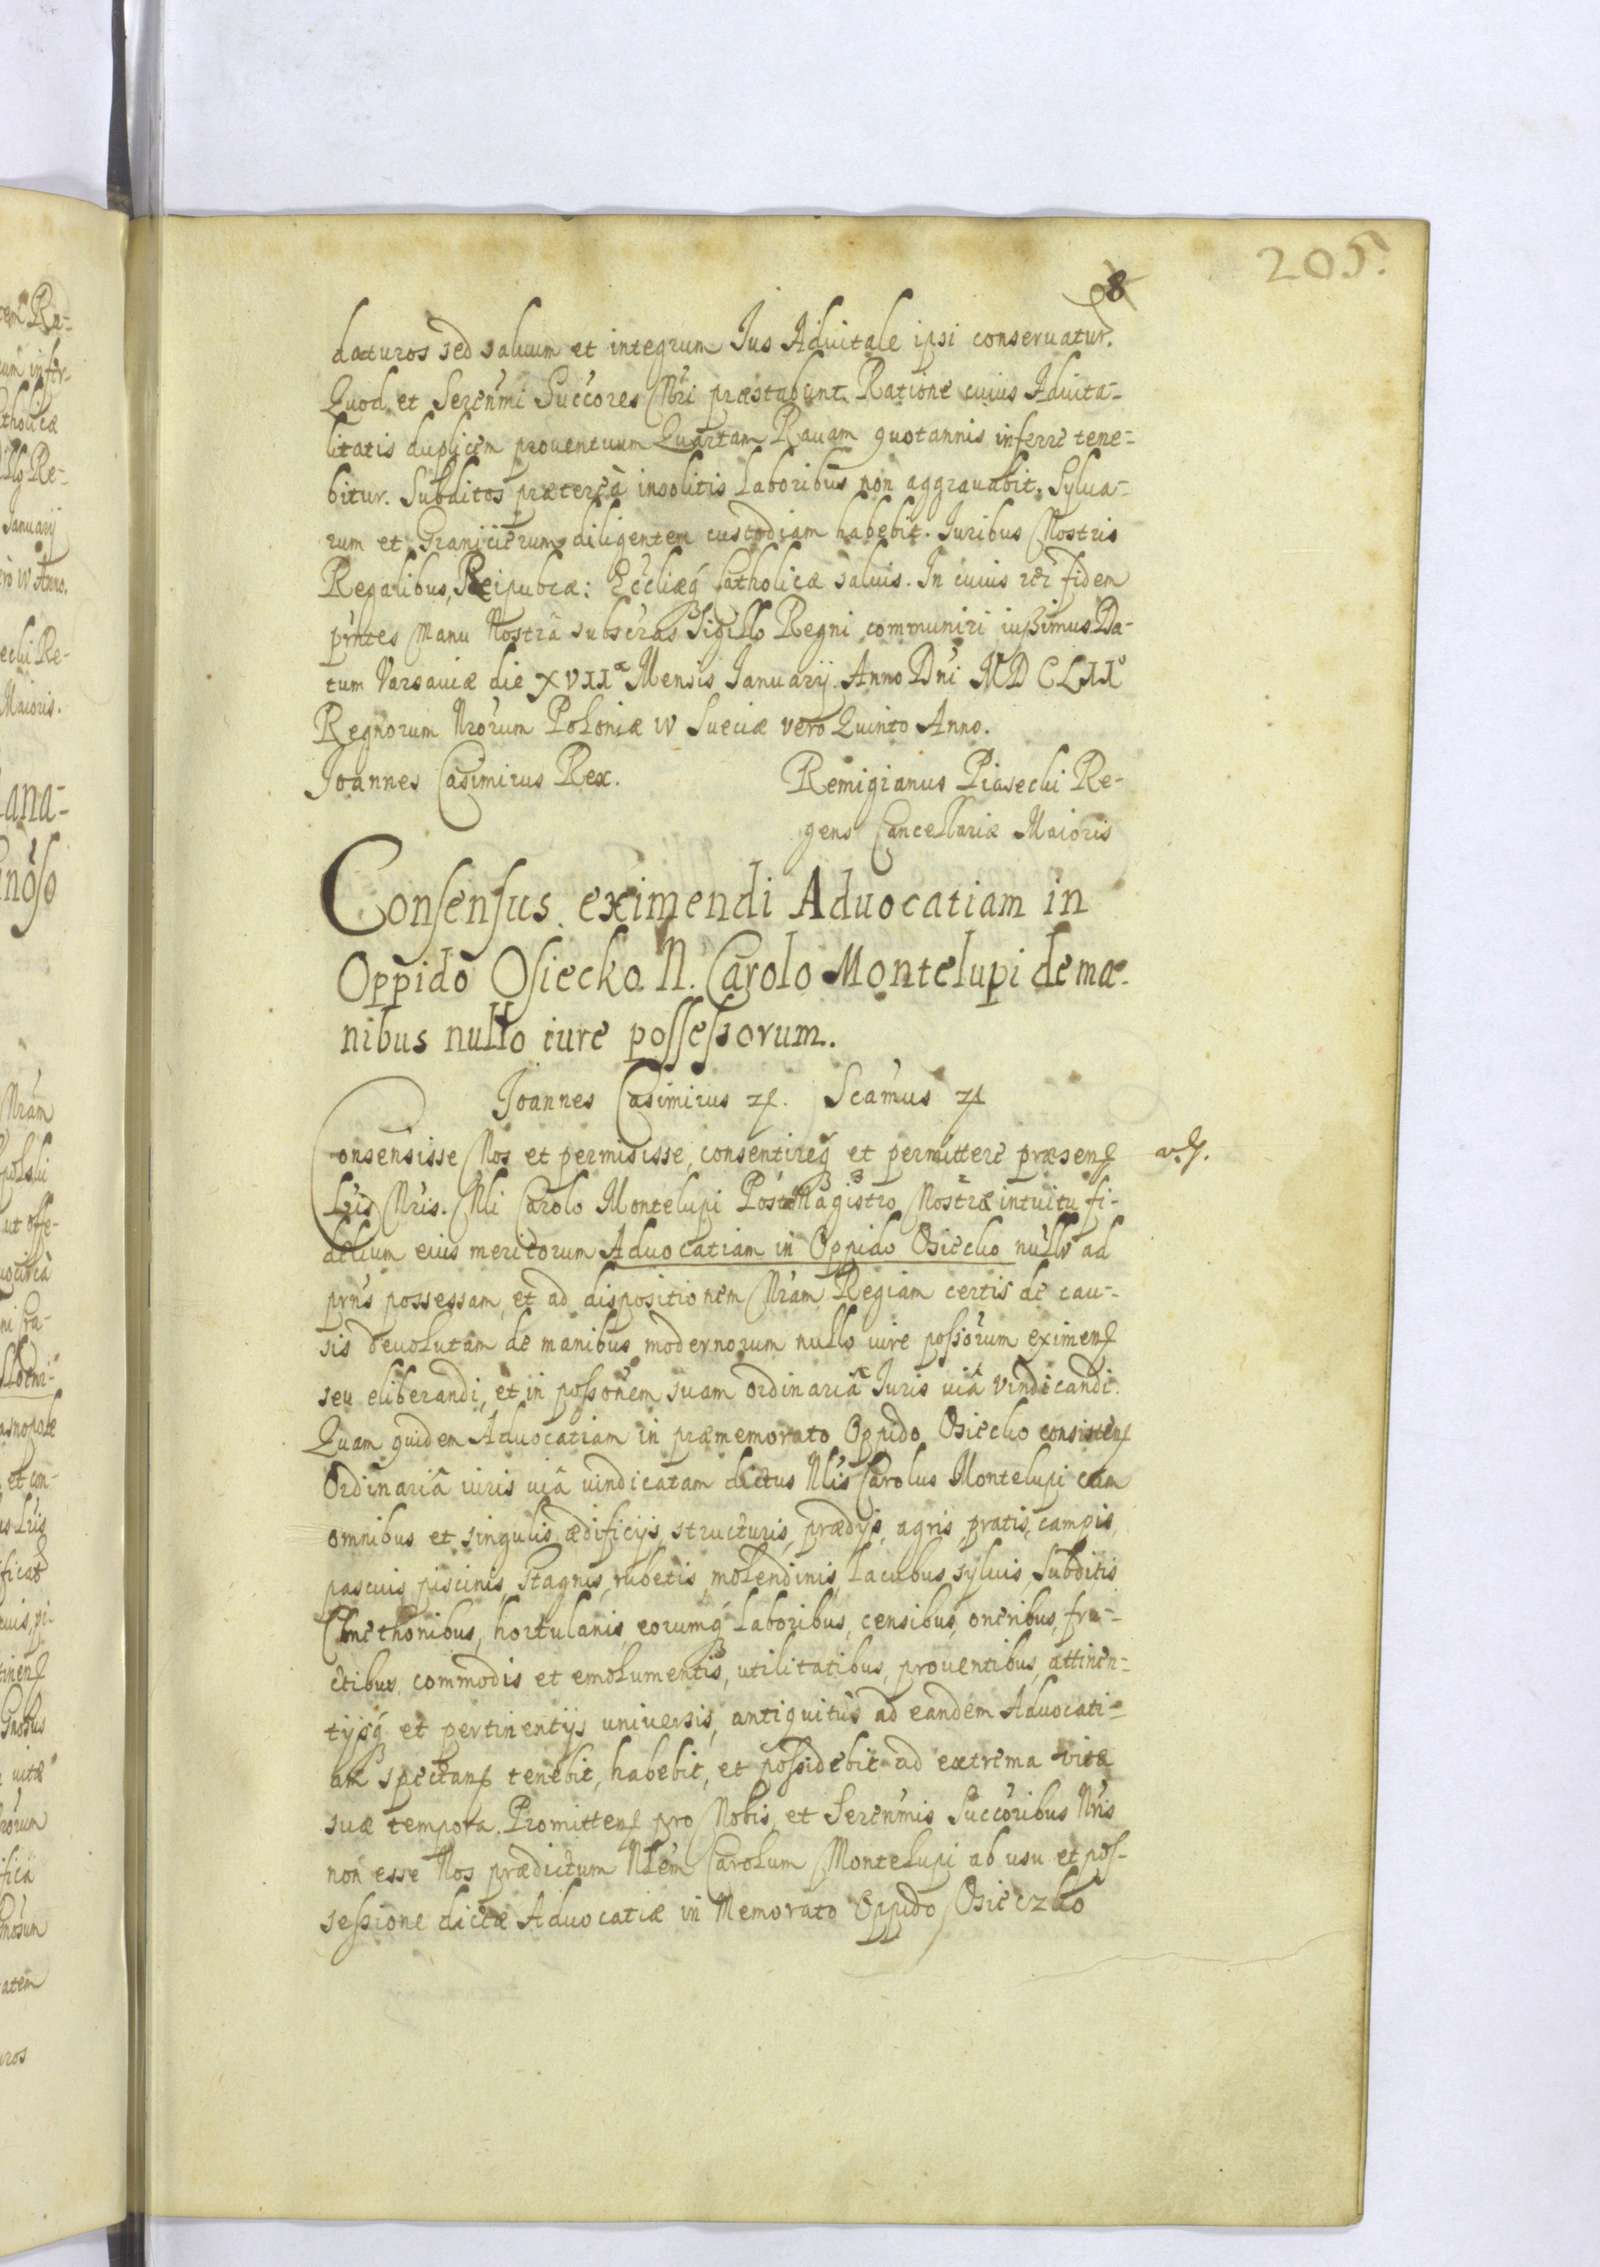 205.
8
daturos sed saluum et integrum Ius Aduitale ipsi conseruatur.
Quod et Seren̄mi Succ̄ores Nr̄i præstabunt. Ratione cuius Aduita-
litatis duplicem prouentuum Quartam Rauam quotannis inferre tene-
bitur. Subditos prætereà insolitis Laboribus non aggrauabit. Sylua-
rum et Graniicierum diligentem custodiam habebit. Iuribus Nostris
Regalibus, Reipubcæ: Eccliæq́ Catholicæ saluis. In cuius rei fidem
pr̄ntes Manu Nostrâ subscr̄as Sigillo Regni communiri iussimus. Da-
tum Varsauiæ die XVIIa Mensis Ianuarij. Anno Dn̄i MDCLIIo
Regnorum Nr̄orum Poloniæ IV Sueciæ vero Quinto Anno.
Joannes Casimirus Rex. Remigianus Piasecki Re-
gens Cancellariæ Maioris
Consensus eximendi Aduocatiam in
Oppido Osiecko N. Carolo Montelupi de ma-
nibus nullo iure possessorum.
Joannes Casimirus Scāmus
Consensisse Nos et permisisse, consentireq́ et permittere præsen
Lr̄is Nr̄is. Nli Carolo Montelupi PostMagistro Nostræ intuitu fi-
delium eius meritorum Aduocatiam in Oppido Osiecko nullo ad
prn̄s possessam, et ad dispositionem Nr̄am Regiam certis de cau-
sis deuolutam de manibus modernorum nullo iure possorum eximen
seu eliberandi, et in posson̄em suam ordinariâ Iuris uiâ vindicandi.
Quam quidem Aduocatiam in præmemorato Oppido Osiecko consisten
Ordinariâ iuris uiâ vindicatam dictus Nlis Carolus Montelupi cum
omnibus et singulis ædificijs, structuris, prædijs, agris, pratis, campis,
pascuis, piscinis, Stagnis, rubetis, molendinis, Lacubus, syluis, Subditis
Cmethonibus, hortulanis, eorumq́ Laboribus, censibus, oneribus, fru-
ctibus, commodis et emolumentis, utilitatibus, prouentibus, attinen-
tijsq́ et pertinentijs uniuersis, antiquitùs ad eandem Aduocati-
am spectan tenebit, habebit, et possidebit ad extrema vitæ
suæ tempora. Promitten pro Nobis, et Seren̄mis Succ̄oribus Nr̄is
non esse Nos prædictum Nlem Carolum Montelupi ab usu et pos-
sessione dictæ Aduocatiæ in Memorato Oppido Osieczko